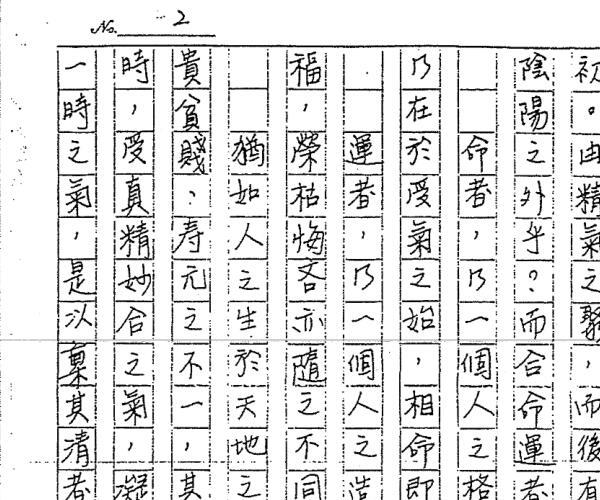 No. 2
初。由精氣之聚，而後有
陰陽之外乎？而合命運者
命者，乃一個人之格
乃在於受氣之始，相命即
運者，乃一個人之造
福，榮枯悔吝亦隨之不同
猶如人之生於天地之
貴貧賤，寿元之不一，其
時，受真精妙合之氣，凝
一時之氣，是以稟其清者